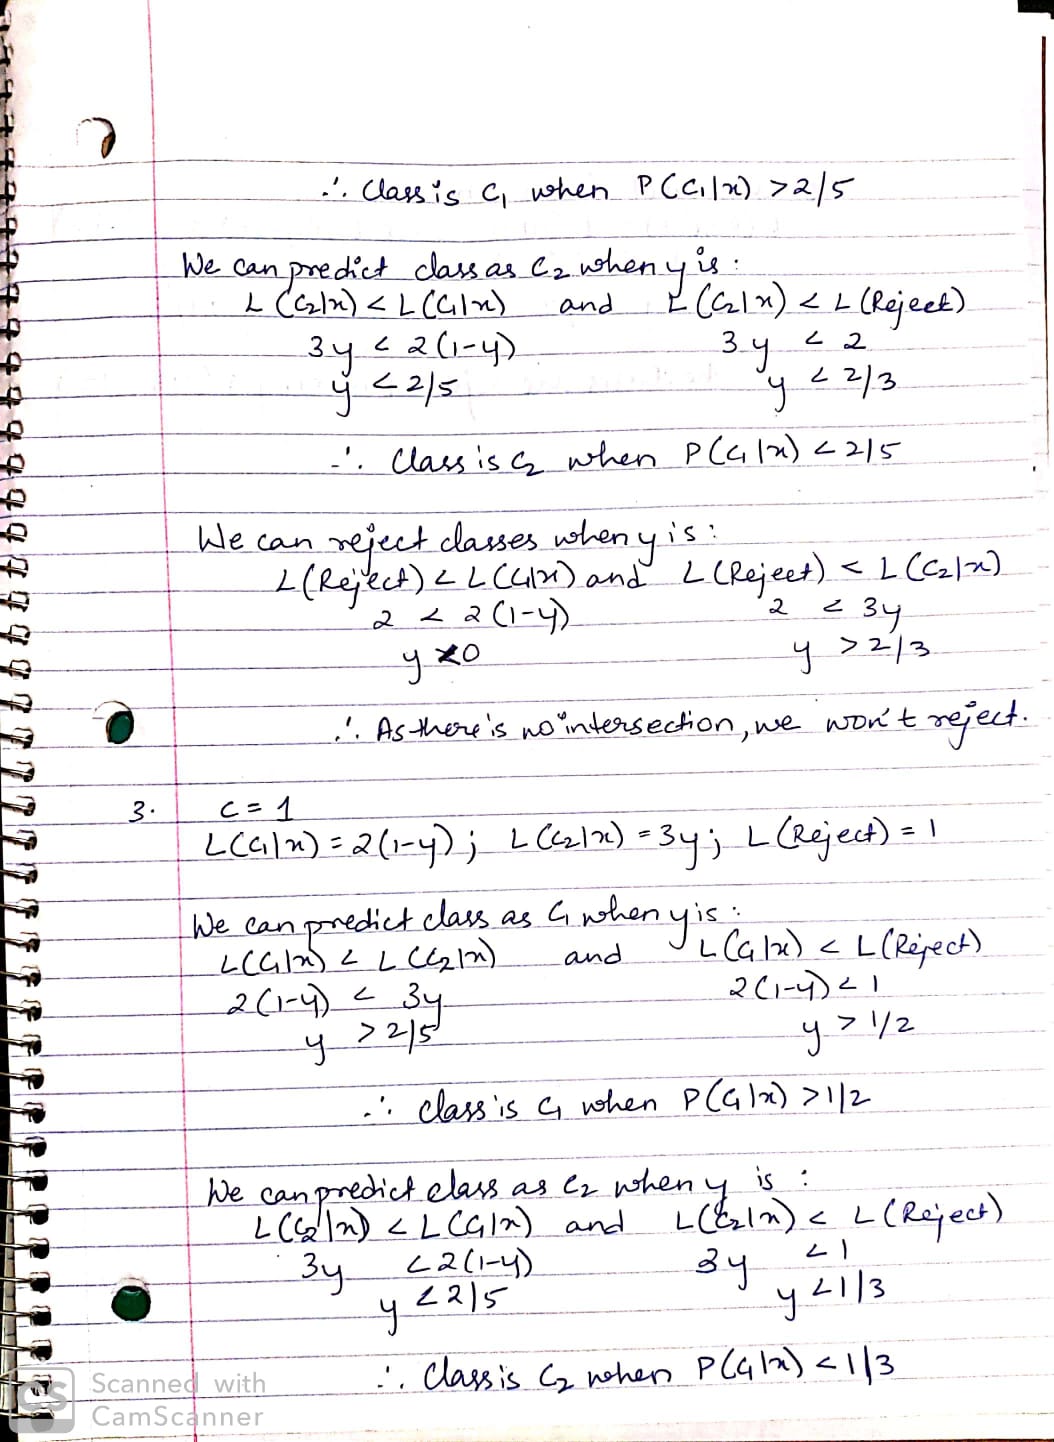 ∴ Class is C₁ when P(C₁|x) > 2/5
We can predict class as C₂ when y is :
L(C₂|x) < L(C₁|x) and L(C₂|x) < L(Reject)
3y < 2(1-y) 3y < 2
y < 2/5 y < 2/3
∴ Class is C₂ when P(C₁|x) < 2/5
We can reject classes when y is :
L(Reject) < L(C₁|x) and L(Reject) < L(C₂|x)
2 < 2(1-y) 2 < 3y
y < 0 y > 2/3
∴ As there is no intersection, we won't reject.
3. C = 1
L(C₁|x) = 2(1-y) ; L(C₂|x) = 3y ; L(Reject) = 1
We can predict class as C₁ when y is :
L(C₁|x) < L(C₂|x) and L(C₁|x) < L(Reject)
2(1-y) < 3y 2(1-y) < 1
y > 2/5 y > 1/2
∴ class is C₁ when P(C₁|x) > 1/2
We can predict class as C₂ when y is :
L(C₂|x) < L(C₁|x) and L(C₂|x) < L(Reject)
3y < 2(1-y) 3y < 1
y < 2/5 y < 1/3
∴ Class is C₂ when P(C₁|x) < 1/3
CS Scanned with
CamScanner